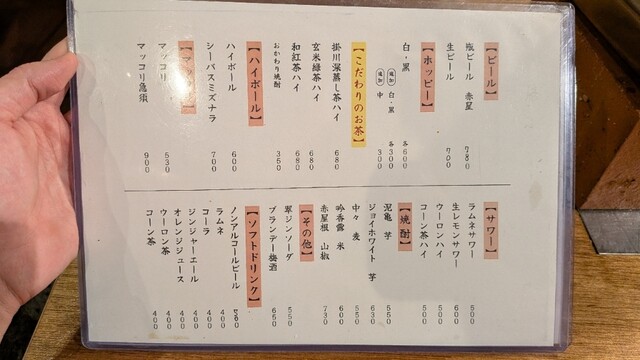 【ビール】
瓶ビール 赤星 780
生ビール 700
【ホッピー】
白・黒 各600
追加 白・黒 各300
追加 中 300
【こだわりのお茶】
掛川深蒸し茶ハイ 680
玄米緑茶ハイ 680
和紅茶ハイ 680
おかわり焼酎 350
【ハイボール】
ハイボール 600
シーバスミズナラ 700
マッコリ 530
マッコリ急須 900
【サワー】
ラムネサワー 500
生レモンサワー 600
ウーロンハイ 500
コーン茶ハイ 500
【焼酎】
泥亀 芋 550
ジョイホワイト 芋 630
中々 麦 550
吟香露 米 600
赤屋根 山椒 730
【その他】
翠ジンソーダ 550
ブランデー梅酒 650
【ソフトドリンク】
ノンアルコールビール
ラムネ 400
コーラ 400
ジンジャーエール 400
オレンジジュース 400
ウーロン茶 400
コーン茶 400